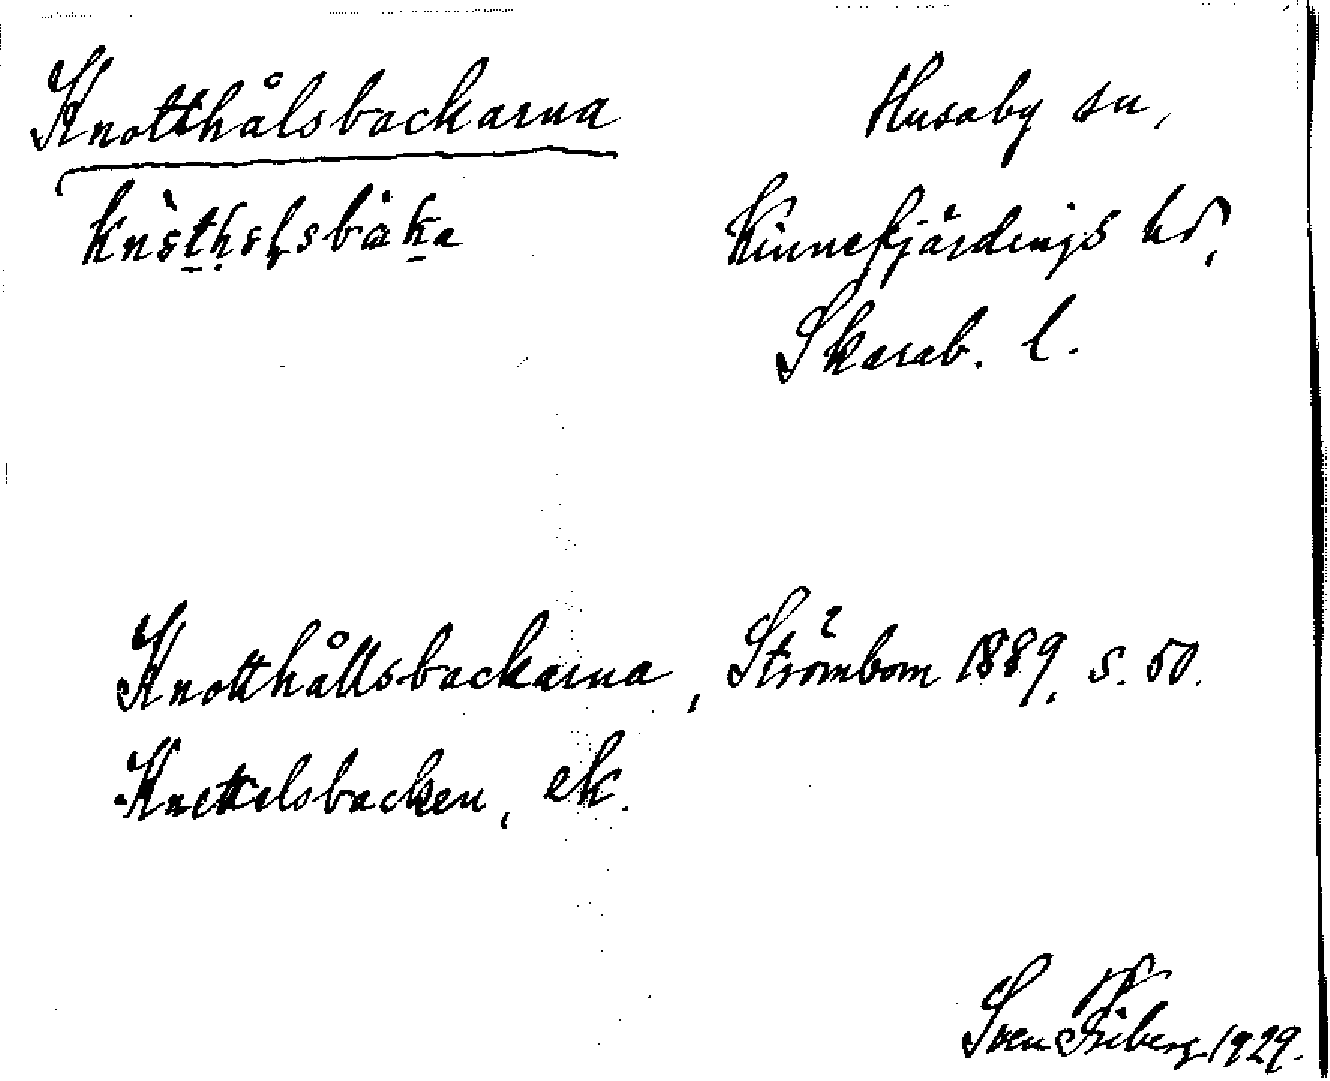 Knotthålsbackarna
Husaby sn,
Kinnefjärdings hd,
Skarab. l.
Knotthållsbackarna, Strömbom 1889, s. 50.
Knettelsbacken, ek.
Sven Friberg 1929.